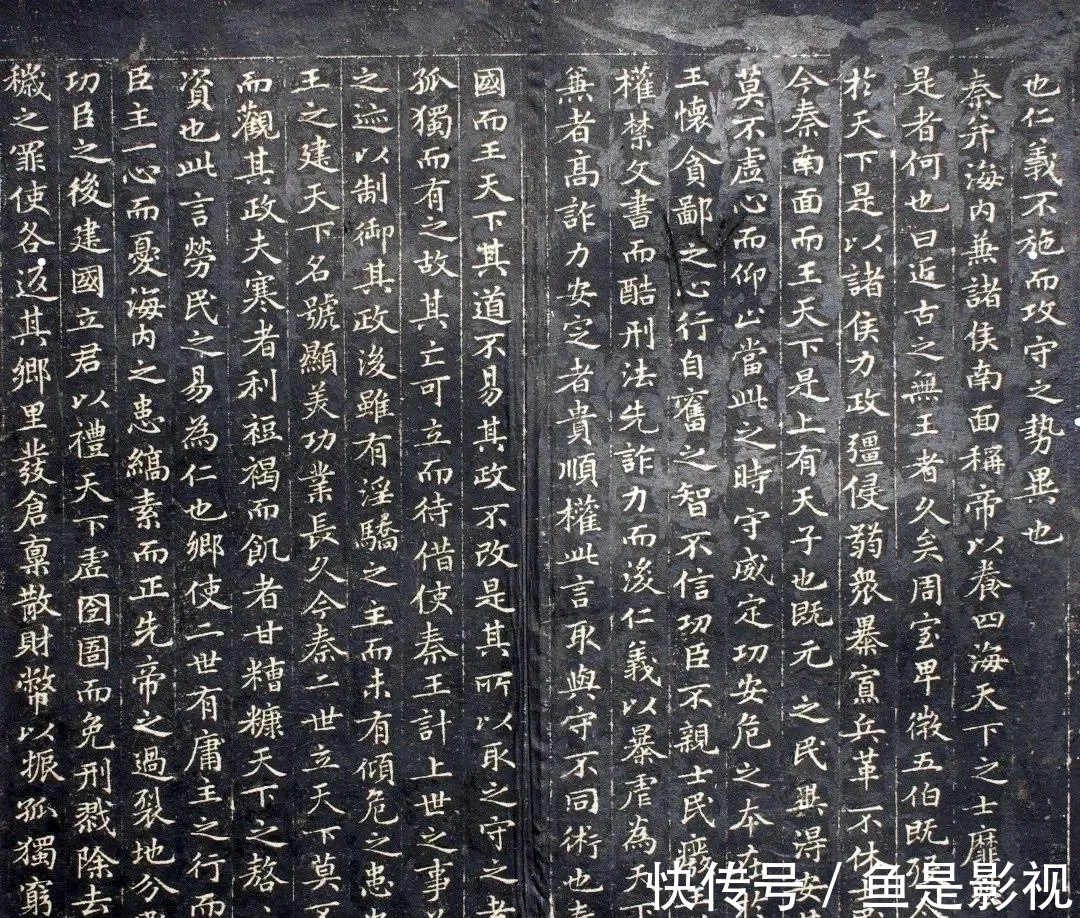 也仁義不施而攻守之勢異也
秦并海內兼諸侯南面稱帝以養四海天下之士靡
是者何也曰近古之無王者久矣周室卑微五伯既歿
於天下是以諸侯力政彊侵弱衆暴寡兵革不休
今秦南面而王天下是上有天子也既元之民冀得安
莫不虛心而仰止當此之時守威定功安危之本在於
王懷貪鄙之心行自奮之智不信功臣不親士民廢王
權禁文書而酷刑法先詐力而後仁義以暴虐為天下
兼者高詐力安定者貴順權此言取與守不同術也秦
國而王天下其道不易其政不改是其所以取之守之者
孤獨而有之故其亡可立而待借使秦王計上世之事
之迹以制御其政後雖有淫驕之主而未有傾危之患
王之建天下名號顯美功業長久今秦二世立天下莫不
而觀其政夫寒者利裋褐而飢者甘糟糠天下之嗸
資也此言勞民之易為仁也鄉使二世有庸主之行而
臣主一心而憂海內之患縞素而正先帝之過裂地分
功臣之後建國立君以禮天下虛囹圄而免刑戮除去
穢之罪使各返其鄉里發倉稟散財幣以振孤獨窮
快传号 / 鱼是影视